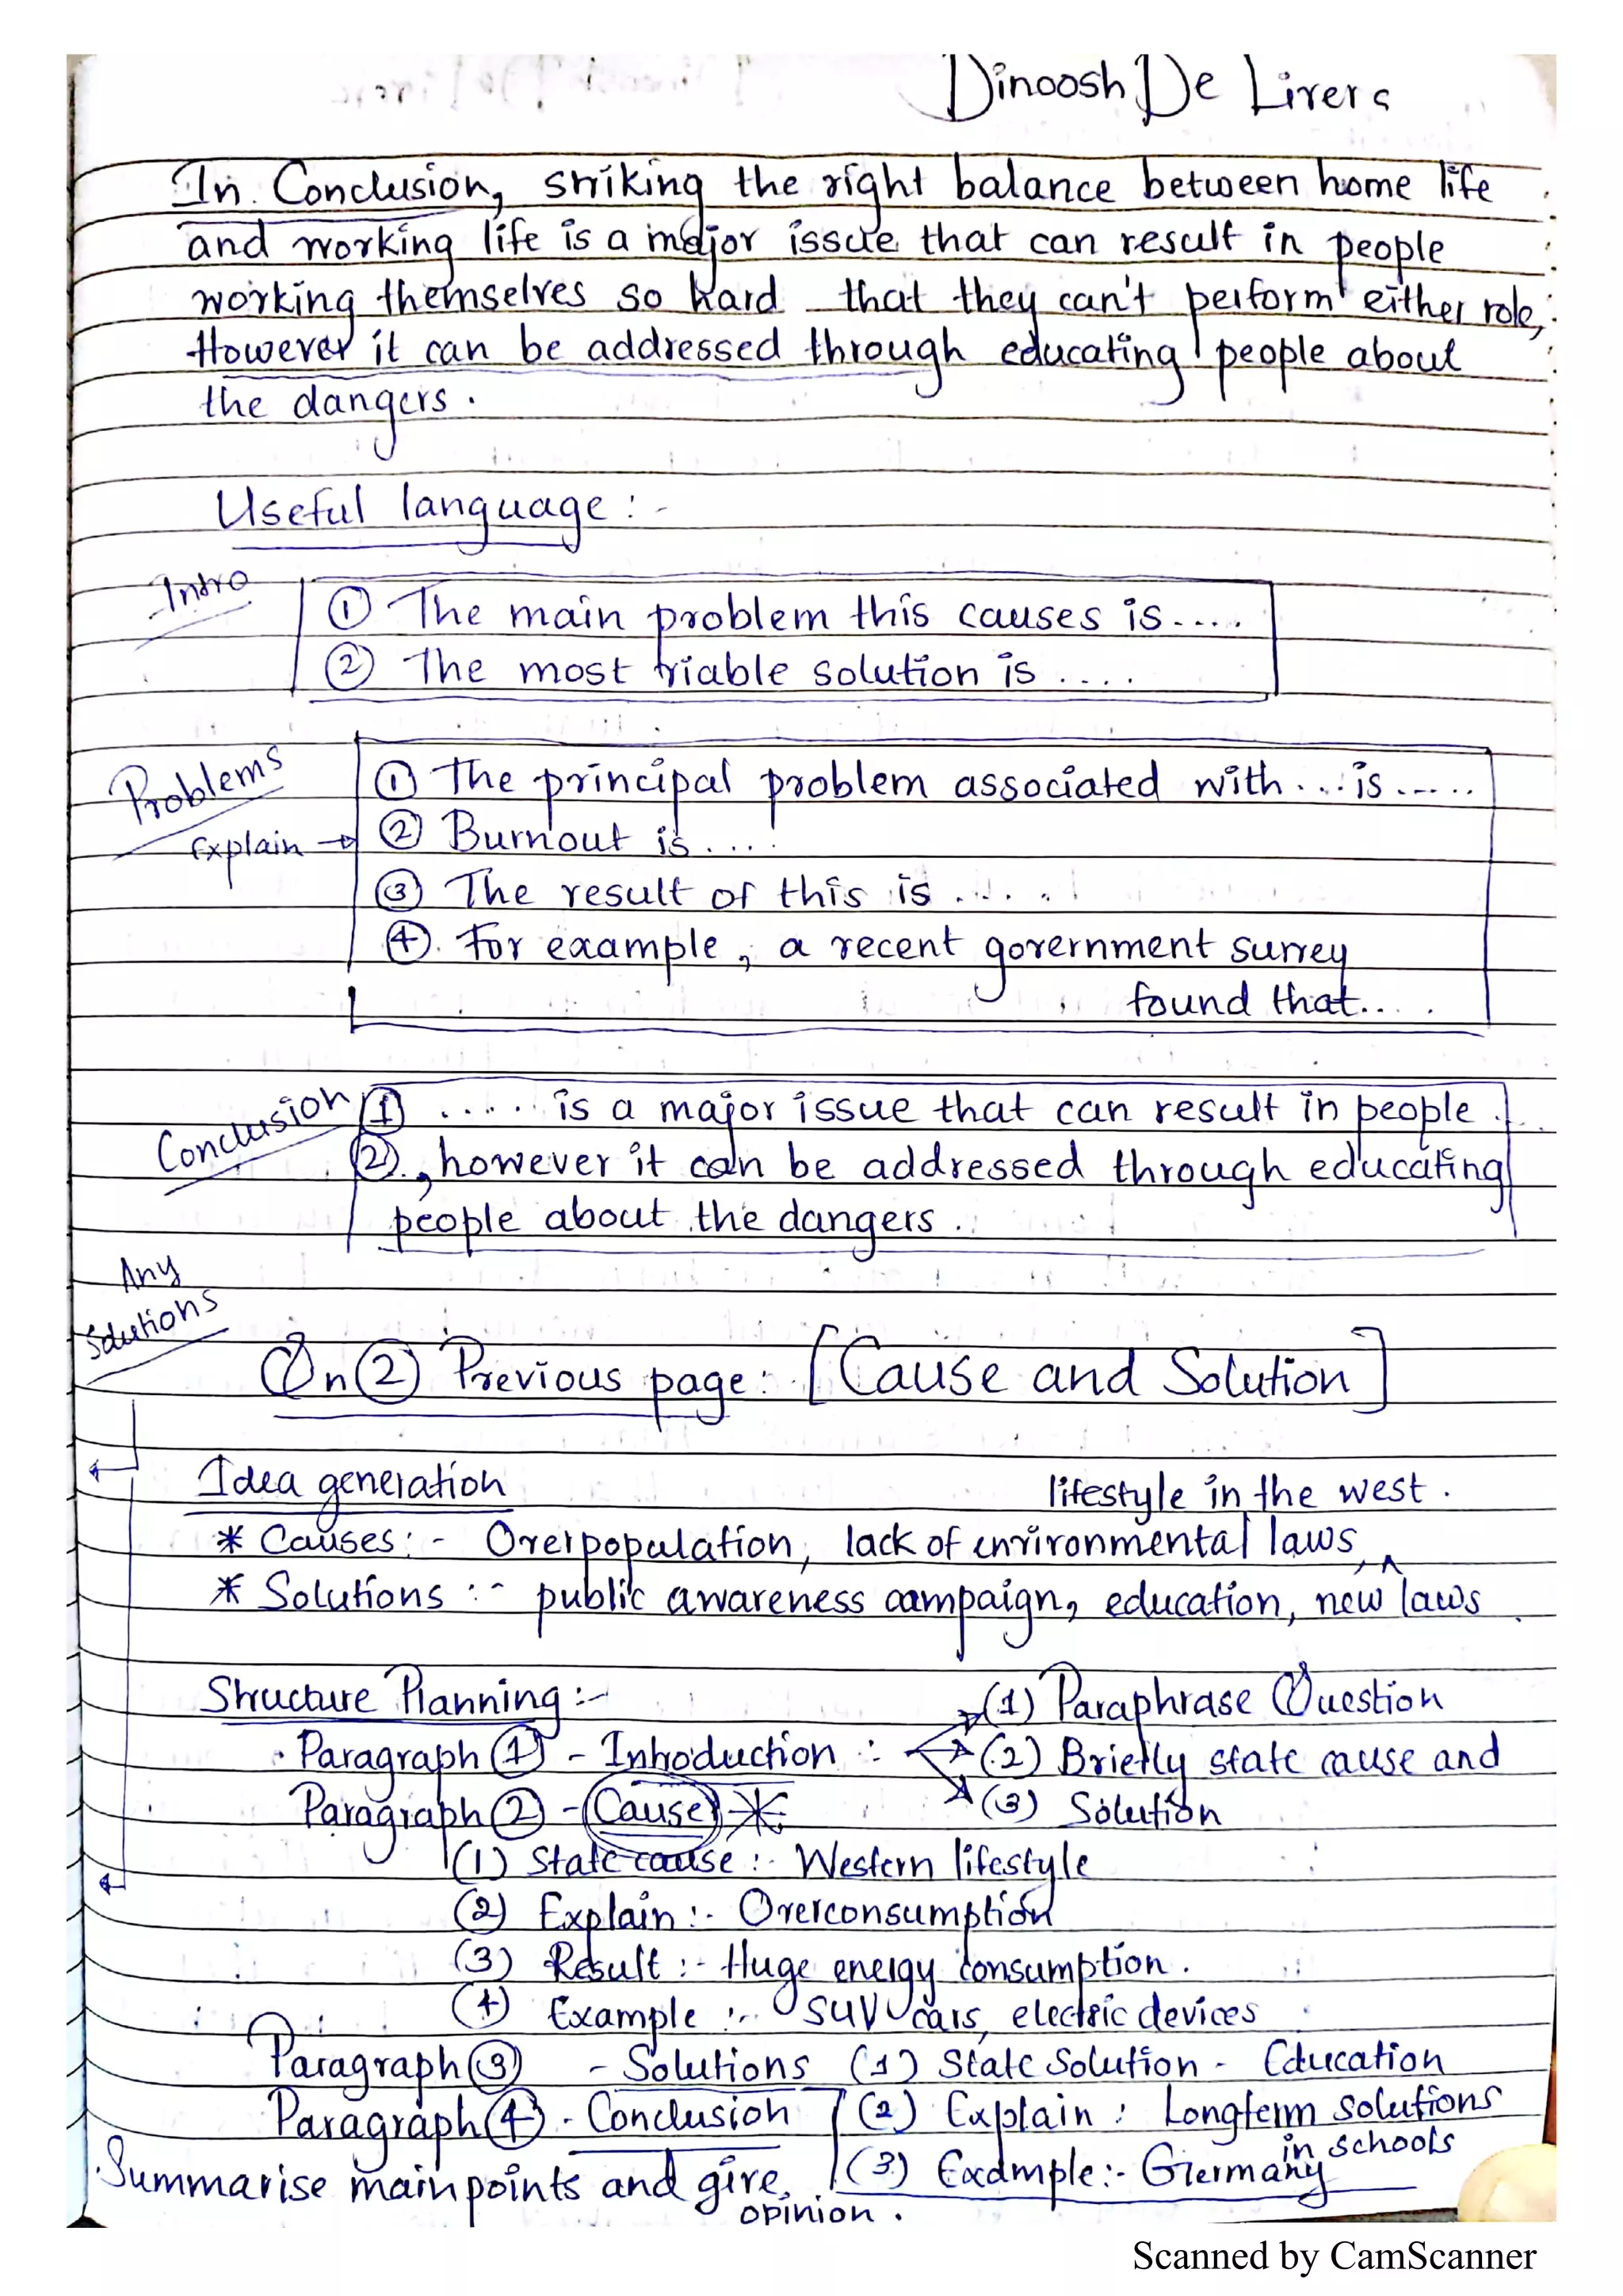 Dinoosh De Livera
In Conclusion, striking the right balance between home life
and working life is a major issue that can result in people
working themselves so hard that they can't perform either role,
However it can be addressed through educating people about
the dangers.
Useful language :-
Intro
① The main problem this causes is.....
② The most viable solution is ....
Problems
Explain →
① The principal problem associated with ... is .....
② Burnout is ....
③ The result of this is .....
④. For example, a recent government survey
found that... .
Conclusion
① ..... is a major issue that can result in people .
②. , however it can be addressed through educating
people about the dangers .
Any
Solutions
Qn ② Previous page: [Cause and Solution]
Idea generation
lifestyle in the west .
* Causes :- Overpopulation, lack of environmental laws, ^
* Solutions :- public awareness campaign, education, new laws
Structure Planning :-
(1) Paraphrase Question
Paragraph ① - Introduction : (2) Briefly state cause and
Paragraph ② - Cause * (3) Solution
(1) State cause :- Western lifestyle
(2) Explain :- Overconsumption
(3) Result :- Huge energy consumption .
(4) Example :- SUV cars, electric devices
Paragraph ③ - Solutions (1) State Solution - Education
Paragraph ④ - Conclusion (2) Explain : Longterm solutions
in schools
Summarise main points and give (3) Example :- Germany
opinion .
Scanned by CamScanner